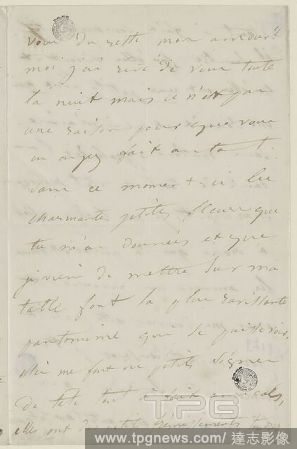 moi j'ai rêvé de vous toute
la nuit mais ce n'est pas
une raison pour que vous
en ayez fait autant.
dans ce moment ci les
charmantes petites fleurs que
tu m'as données et que
je viens de mettre sur ma
table font la plus ravissante
pantomime que je
elles me font de petits signes
de tête tout à fait
elles ont de petits
TPG
www.tpgnews.com / 達志影像